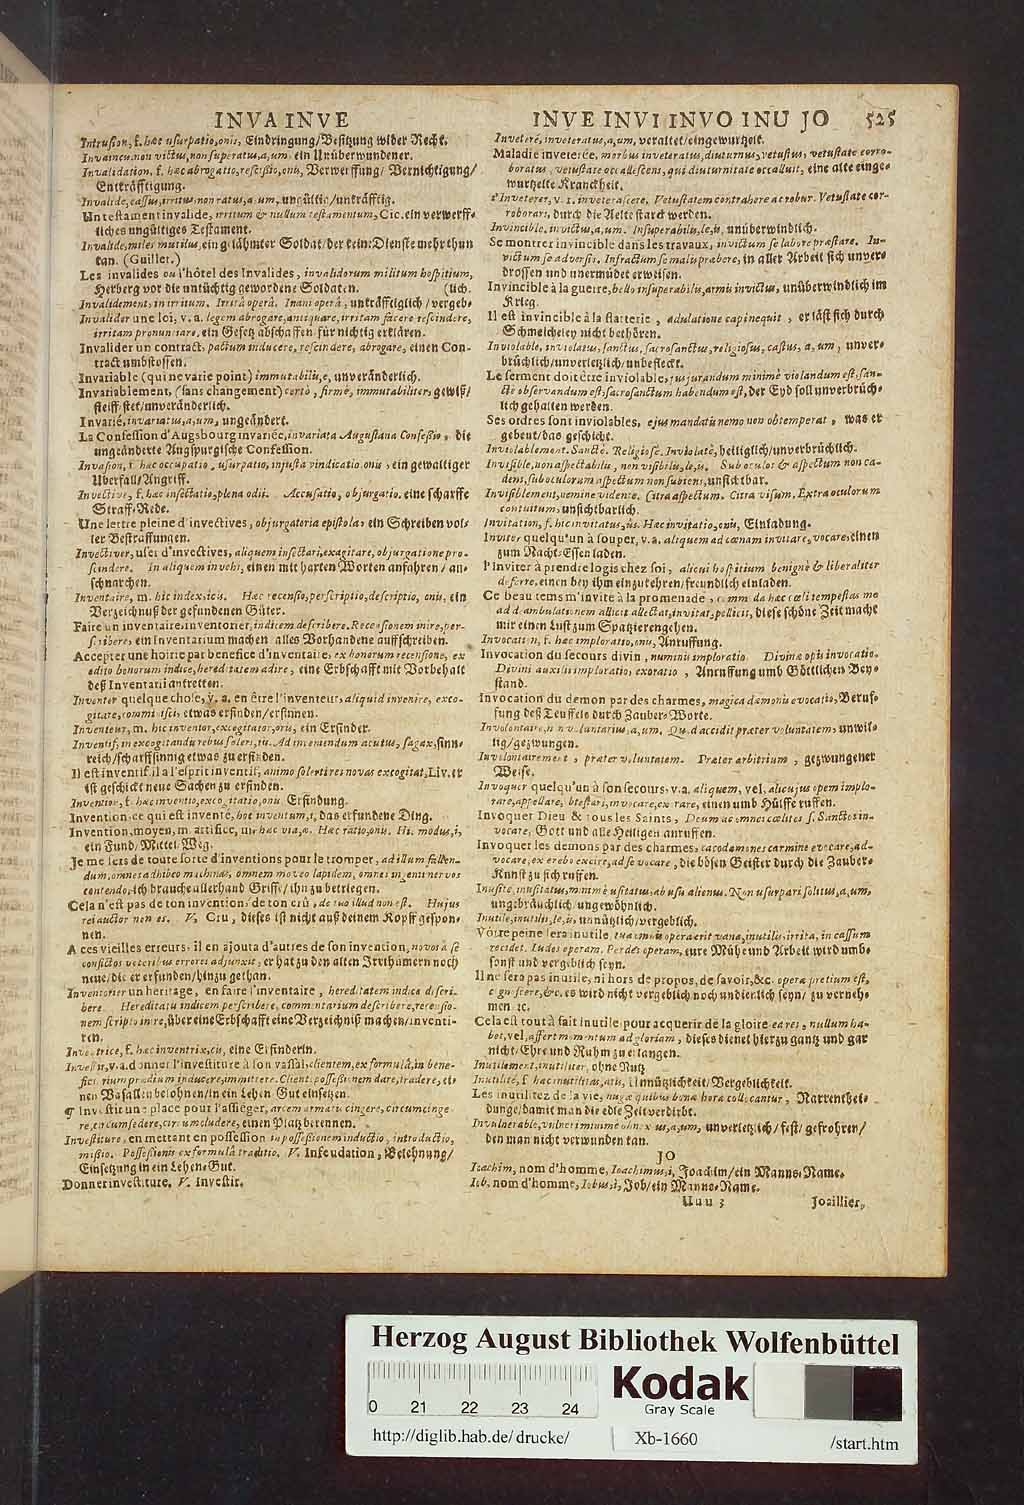 INVA INVE
Intrusion, f. hæc usurpatio, onis, Eindringung/Besitzung wider Recht.
Invaincu, non victus, non superatus, a, um, ein Unüberwundener.
Invalidation, f. hæc abrogatio, rescissio, onis, Verwerffung/ Vernichtigung/
Entkräfftigung.
Invalide, cassus, irritus, non ratus, a, um, ungültig/unkräfftig.
Un testament invalide, irritum & nullum testamentum, Cic. ein verwerff-
liches ungültiges Testament.
Invalide, miles mutilus, ein gelähmter Soldat/der keine Dienste mehr thun
kan. (Guiller.)
Les invalides ou l'hôtel des Invalides, invalidorum militum hospitium,
Herberg vor die untüchtig gewordene Soldaten. (lich.
Invalidement, in irritum. Irritâ operâ. Inani operâ, unkräfftiglich/vergeb-
Invalider une loi, v. a. legem abrogare, antiquare, irritam facere rescindere,
irritam pronuntiare, ein Gesetz abschaffen für nichtig erklären.
Invalider un contract, pactum inducere, rescindere, abrogare, einen Con-
tract umbstossen.
Invariable (qui ne varie point) immutabilis, e, unveränderlich.
Invariablement, (sans changement) certò, firmè, immutabiliter, gewiß/
steiff/stet/unveränderlich.
Invarié, invariatus, a, um, ungeändert.
La Confession d'Augsbourg invariée, invariata Augustana Confessio, die
ungeänderte Augspurgische Confession.
Invasion, f. hæc occupatio, usurpatio, injusta vindicatio, onis, ein gewaltiger
Überfall/Angriff.
Invective, f. hæc insectatio, plena odii. Accusatio, objurgatio, eine scharffe
Straff-Rede.
Une lettre pleine d'invectives, objurgatoria epistola, ein Schreiben vol-
ler Bestraffungen.
Invectiver, user d'invectives, aliquem insectari, exagitare, objurgatione pro-
scindere. In aliquem invehi, einen mit harten Worten anfahren/ an-
schnarchen.
Inventaire, m. hic index, icis. Hæc recensio, perscriptio, descriptio, onis, ein
Verzeichnuß der gefundenen Güter.
Faire un inventaire, inventorier, indicem describere. Recensionem inire, per-
scribere, ein Inventarium machen alles Vorhandene auffschreiben.
Accepter une hoirie par benefice d'inventaire, ex bonorum recensione, ex
edito bonorum indice, hereditatem adire, eine Erbschafft mit Vorbehalt
deß Inventarii antretten.
Inventer quelque chose, v. a. en être l'inventeur, aliquid invenire, exco-
gitare, comminisci, etwas erfinden/ersinnen.
Inventeur, m. hic inventor, excogitator, oris, ein Erfinder.
Inventif, in excogitandis rebus solers, tis. Ad inveniendum acutus, sagax, sinn-
reich/scharffsinnig etwas zu erfinden.
Il est inventif, il a l'esprit inventif, animo solertires novas excogitat, Liv. er
ist geschickt neue Sachen zu erfinden.
Invention, f. hæc inventio, excogitatio, onis Erfindung.
Invention, ce qui est inventé, hoc inventum, i, das erfundene Ding.
Invention, moyen, m. artifice, m. hæc via, æ. Hæc ratio, onis. Hi. modus, i,
ein Fund, Mittel, Weg.
Je me sers de toute sorte d'inventions pour le tromper, ad illum fallen-
dum, omnes adhibeo machinas, omnem moveo lapidem, omnes ingenii nervos
contendo, ich brauche allerhand Griffe/ ihn zu betriegen.
Cela n'est pas de ton invention, de ton crû, de tuo illud non est. Hujus
rei auctor non es. V. Cru, dieses ist nicht auß deinem Kopff gespon-
nen.
A ces vieilles erreurs, il en ajouta d'autres de son invention, novos à se
confictos veteribus errores adjunxit, er hat zu den alten Irrthümern noch
neue/die er erfunden/hinzu gethan.
Inventorier un heritage, en faire l'inventaire, hereditatem indice descri-
bere. Hereditatis indicem perscribere, commentarium describere, recensio-
nem scripto inire, über eine Erbschafft eine Verzeichniß machen/inventi-
ren.
Inventrice, f. hæc inventrix, cis, eine Erfinderin.
Investir, v. a. donner l'investiture à son vassal, clientem, ex formulâ, in bene-
ficiarium prædium inducere, immittere. Clienti possessionem dare, tradere, ei-
nen Vasallen belohnen/in ein Lehen Gut einsetzen.
¶ Investir une place pour l'assieger, arcem armatis cingere, circumcinge-
re, circumsedere, circumcludere, einen Platz berennen.
Investiture, en mettant en possession in possessionem inductio, introductio,
missio. Possessionis ex formulâ traditio. V. Infeudation, Belehnung/
Einsetzung in ein Lehen-Gut.
Donner investiture. V. Investir.
INVE INVI INVO INU JO 525
Inveteré, inveteratus, a, um, veraltet/eingewurtzelt.
Maladie inveterée, morbus inveteratus, diuturnus, vetustus, vetustate corro-
boratus, vetustate occallescens, qui diuturnitate occalluit, eine alte einge-
wurtzelte Kranckheit.
s'Inveterer, v. r. inveterascere. Vetustatem contrahere ac robur. Vetustate cor-
roborari, durch die Aelte starck werden.
Invincible, invictus, a, um. Insuperabilis, le, is, unüberwindlich.
Se montrer invincible dans les travaux, invictum se labore præstare. In-
victum se adversis. Infractum se malis præbere, in aller Arbeit sich unver-
drossen und unermüdet erweisen.
Invincible à la guerre, bello insuperabilis, armis invictus, unüberwindlich im
Krieg.
Il est invincible à la flatterie, adulatione capi nequit, er läst sich durch
Schmeicheley nicht bethören.
Inviolable, inviolatus, sanctus, sacrosanctus, religiosus, castus, a, um, unver-
brüchlich/unverletzlich/unbefleckt.
Le serment doit être inviolable, jusjurandum minimè violandum est, san-
ctè observandum est, sacrosanctum habendum est, der Eyd soll unverbrüch-
lich gehalten werden.
Ses ordres sont inviolables, ejus mandatis nemo non obtemperat, was er
gebeut/das geschicht.
Inviolablement. Sanctè. Religiosè. Inviolatè, heiliglich/unverbrüchlich.
Invisible, non aspectabilis, non visibilis, le, is. Sub oculos & aspectum non ca-
dens, sub oculorum aspectum non subiens, unsichtbar.
Invisiblement, nemine vidente. Citra aspectum. Citra visum. Extra oculorum
contuitum, unsichtbarlich.
Invitation, f. hic invitatus, ûs. Hæc invitatio, onis, Einladung.
Inviter quelqu'un à souper, v. a. aliquem ad cœnam invitare, vocare, einen
zum Nacht-Essen laden.
l'Inviter à prendre logis chez soi, alicui hospitium benignè & liberaliter
deferre, einen bey ihm einzukehren/freundlich einladen.
Ce beau tems m'invite à la promenade, commoda hæc cœli tempestas me
ad deambulationem allicit allectat, invitat, pellicit, diese schöne Zeit macht
mir einen Lust zum Spatzierengehen.
Invocation, f. hæc imploratio, onis, Anruffung.
Invocation du secours divin, numinis imploratio. Divinæ opis invocatio.
Divini auxilii imploratio, exoratio, Anruffung umb Göttlichen Bey-
stand.
Invocation du demon par des charmes, magica dæmonis evocatio, Beruf-
fung deß Teuffels durch Zauber-Worte.
Involontaire, non voluntarius, a, um. Quod accidit præter voluntatem, unwil-
lig/gezwungen.
Involontairement, præter voluntatem. Præter arbitrium, gezwungener
Weise.
Invoquer quelqu'un à son secours, v. a. aliquem, vel, alicujus opem implo-
rare, appellare, obtestari, invocare, exorare, einen umb Hülffe ruffen.
Invoquer Dieu & tous les Saints, Deum ac omnes cœlites s. Sanctos in-
vocare, Gott und alle Heiligen anruffen.
Invoquer les demons par des charmes, cacodæmones carmine evocare, ad-
vocare, ex erebo excire, ad se vocare, die bösen Geister durch die Zauber-
Kunst zu sich ruffen.
Inusité, inusitatus, minimè usitatus, ab usu alienus. Non usurpari solitus, a, um,
ungebräuchlich ungewöhnlich.
Inutile, inutilis, le, is, unnützlich/vergeblich.
Vôtre peine sera inutile, tua omnis opera erit vana, inutilis, irrita, in cassum
recidet. Ludes operam. Perdes operam, eure Mühe und Arbeit wird umb-
sonst und vergeblich seyn.
Il ne sera pas inutile, ni hors de propos, de savoir, &c. operæ pretium est,
cognoscere, &c. es wird nicht vergeblich noch undienlich seyn/ zu verneh-
men/ ꝛc.
Cela est tout à fait inutile pour acquerir de la gloire ea res, nullum ha-
bet, vel, affert momentum ad gloriam, dieses dienet hierzu gantz und gar
nicht/Ehre und Ruhm zu erlangen.
Inutilement, inutiliter, ohne Nutz.
Inutilité, f. hæc inutilitas, atis, Unnützlichkeit/Vergeblichkeit.
Les inutilitez de la vie, nugæ quibus bonæ horæ collocantur, Narrenthei-
dunge/damit man die edle Zeit verdirbt.
Invulnerable, vulneri minimè obnoxius, a, um, unverletzlich/fest/gefrohren/
den man nicht verwunden kan.
JO
Joachim, nom d'homme, Joachimus, i, Joachim/ein Manns-Name.
Job, nom d'homme, Jobus, i, Job/ein Manns-Name.
Uuu 3 Joaillier,
Herzog August Bibliothek Wolfenbüttel
0 21 22 23 24
Kodak
Gray Scale
http://diglib.hab.de/drucke/ Xb-1660 /start.htm